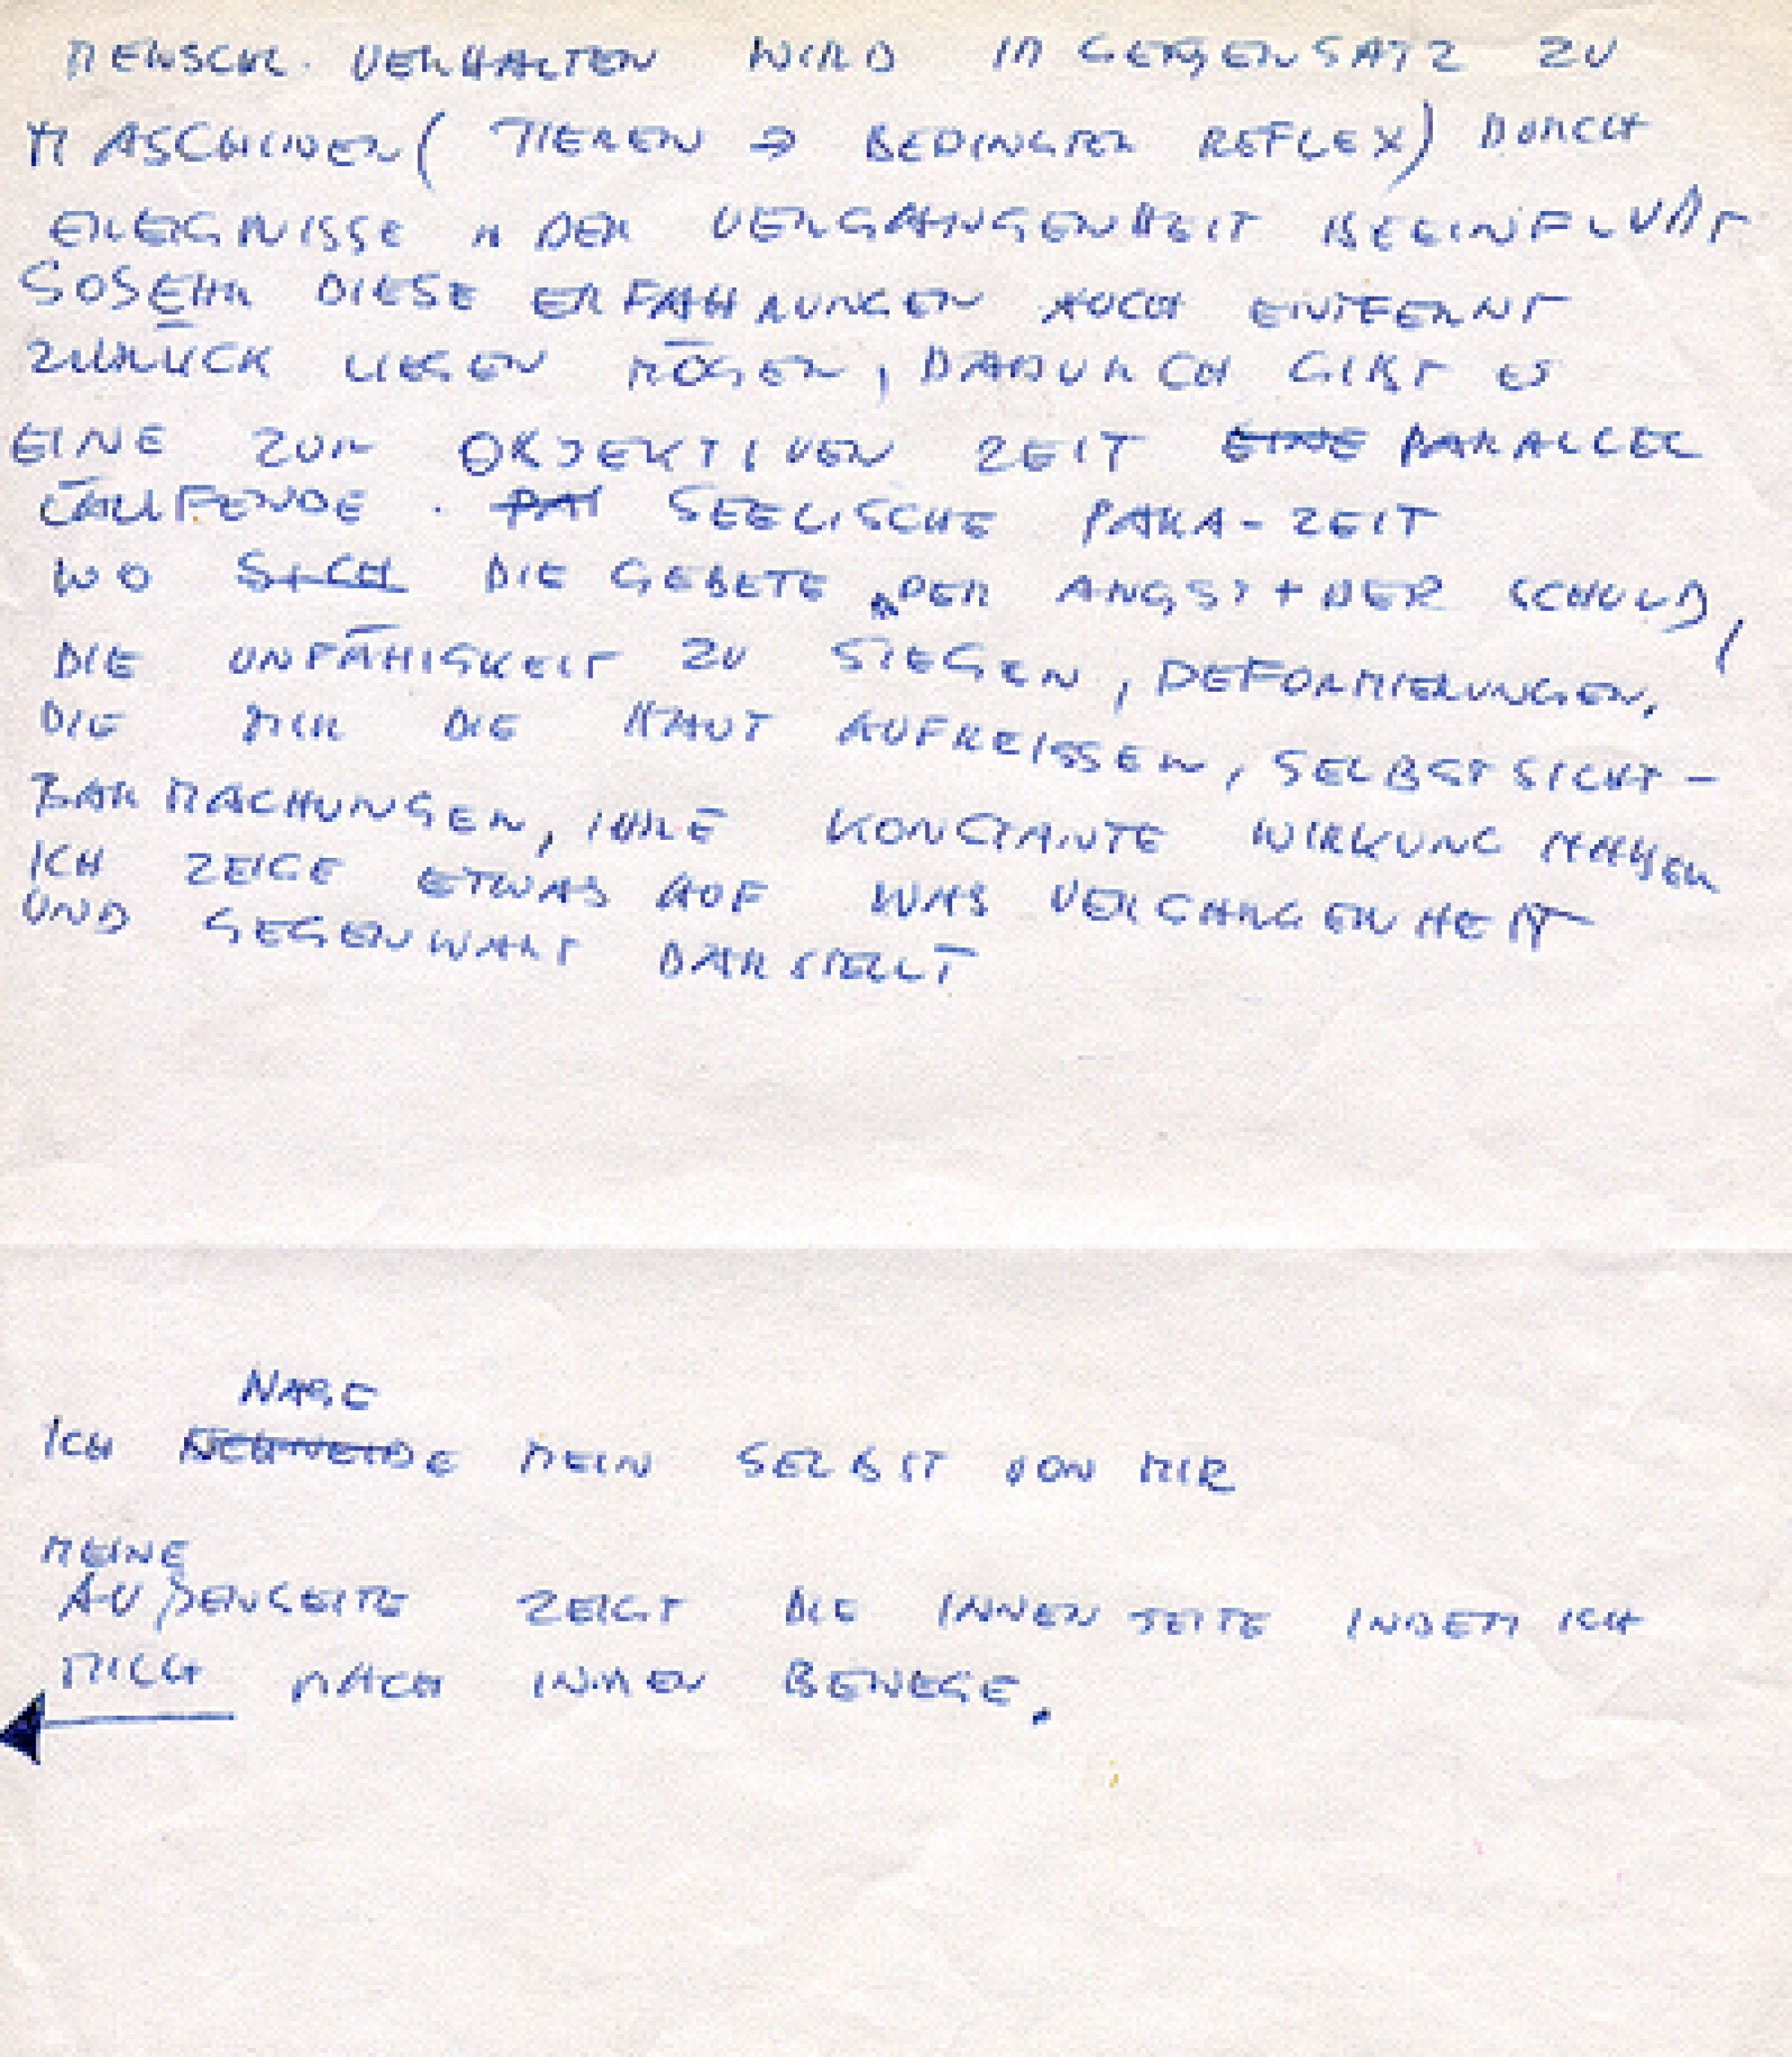 MENSCHL. VERHALTEN WIRD IM GEGENSATZ ZU
MASCHINEN (TIEREN → BEDINGTER REFLEX) DURCH
EREIGNISSE IN DER VERGANGENHEIT BEEINFLUßT
SOSEHR DIESE ERFAHRUNGEN AUCH ENTFERNT
ZURÜCK LIEGEN MÖGEN, DADURCH GIBT ES
EINE ZUR OBJEKTIVEN ZEIT EINE PARALLEL
LAUFENDE. PAR SEELISCHE PARA-ZEIT
WO SICH DIE GEBETE DER ANGST + DER SCHULD,
DIE UNFÄHIGKEIT ZU SIEGEN, DEFORMIERUNGEN,
DIE MIR DIE HAUT AUFREISSEN, SELBSTSICHT-
BARMACHUNGEN, IHRE KONSTANTE WIRKUNG HABEN
ICH ZEIGE ETWAS AUF WAS VERGANGENHEIT
UND GEGENWART DARSTELLT
NABE
ICH SCHNEIDE MEIN SELBST VON MIR
MEINE
AUßENSEITE ZEIGT DIE INNENSEITE INDEM ICH
MICH NACH INNEN BEWEGE.